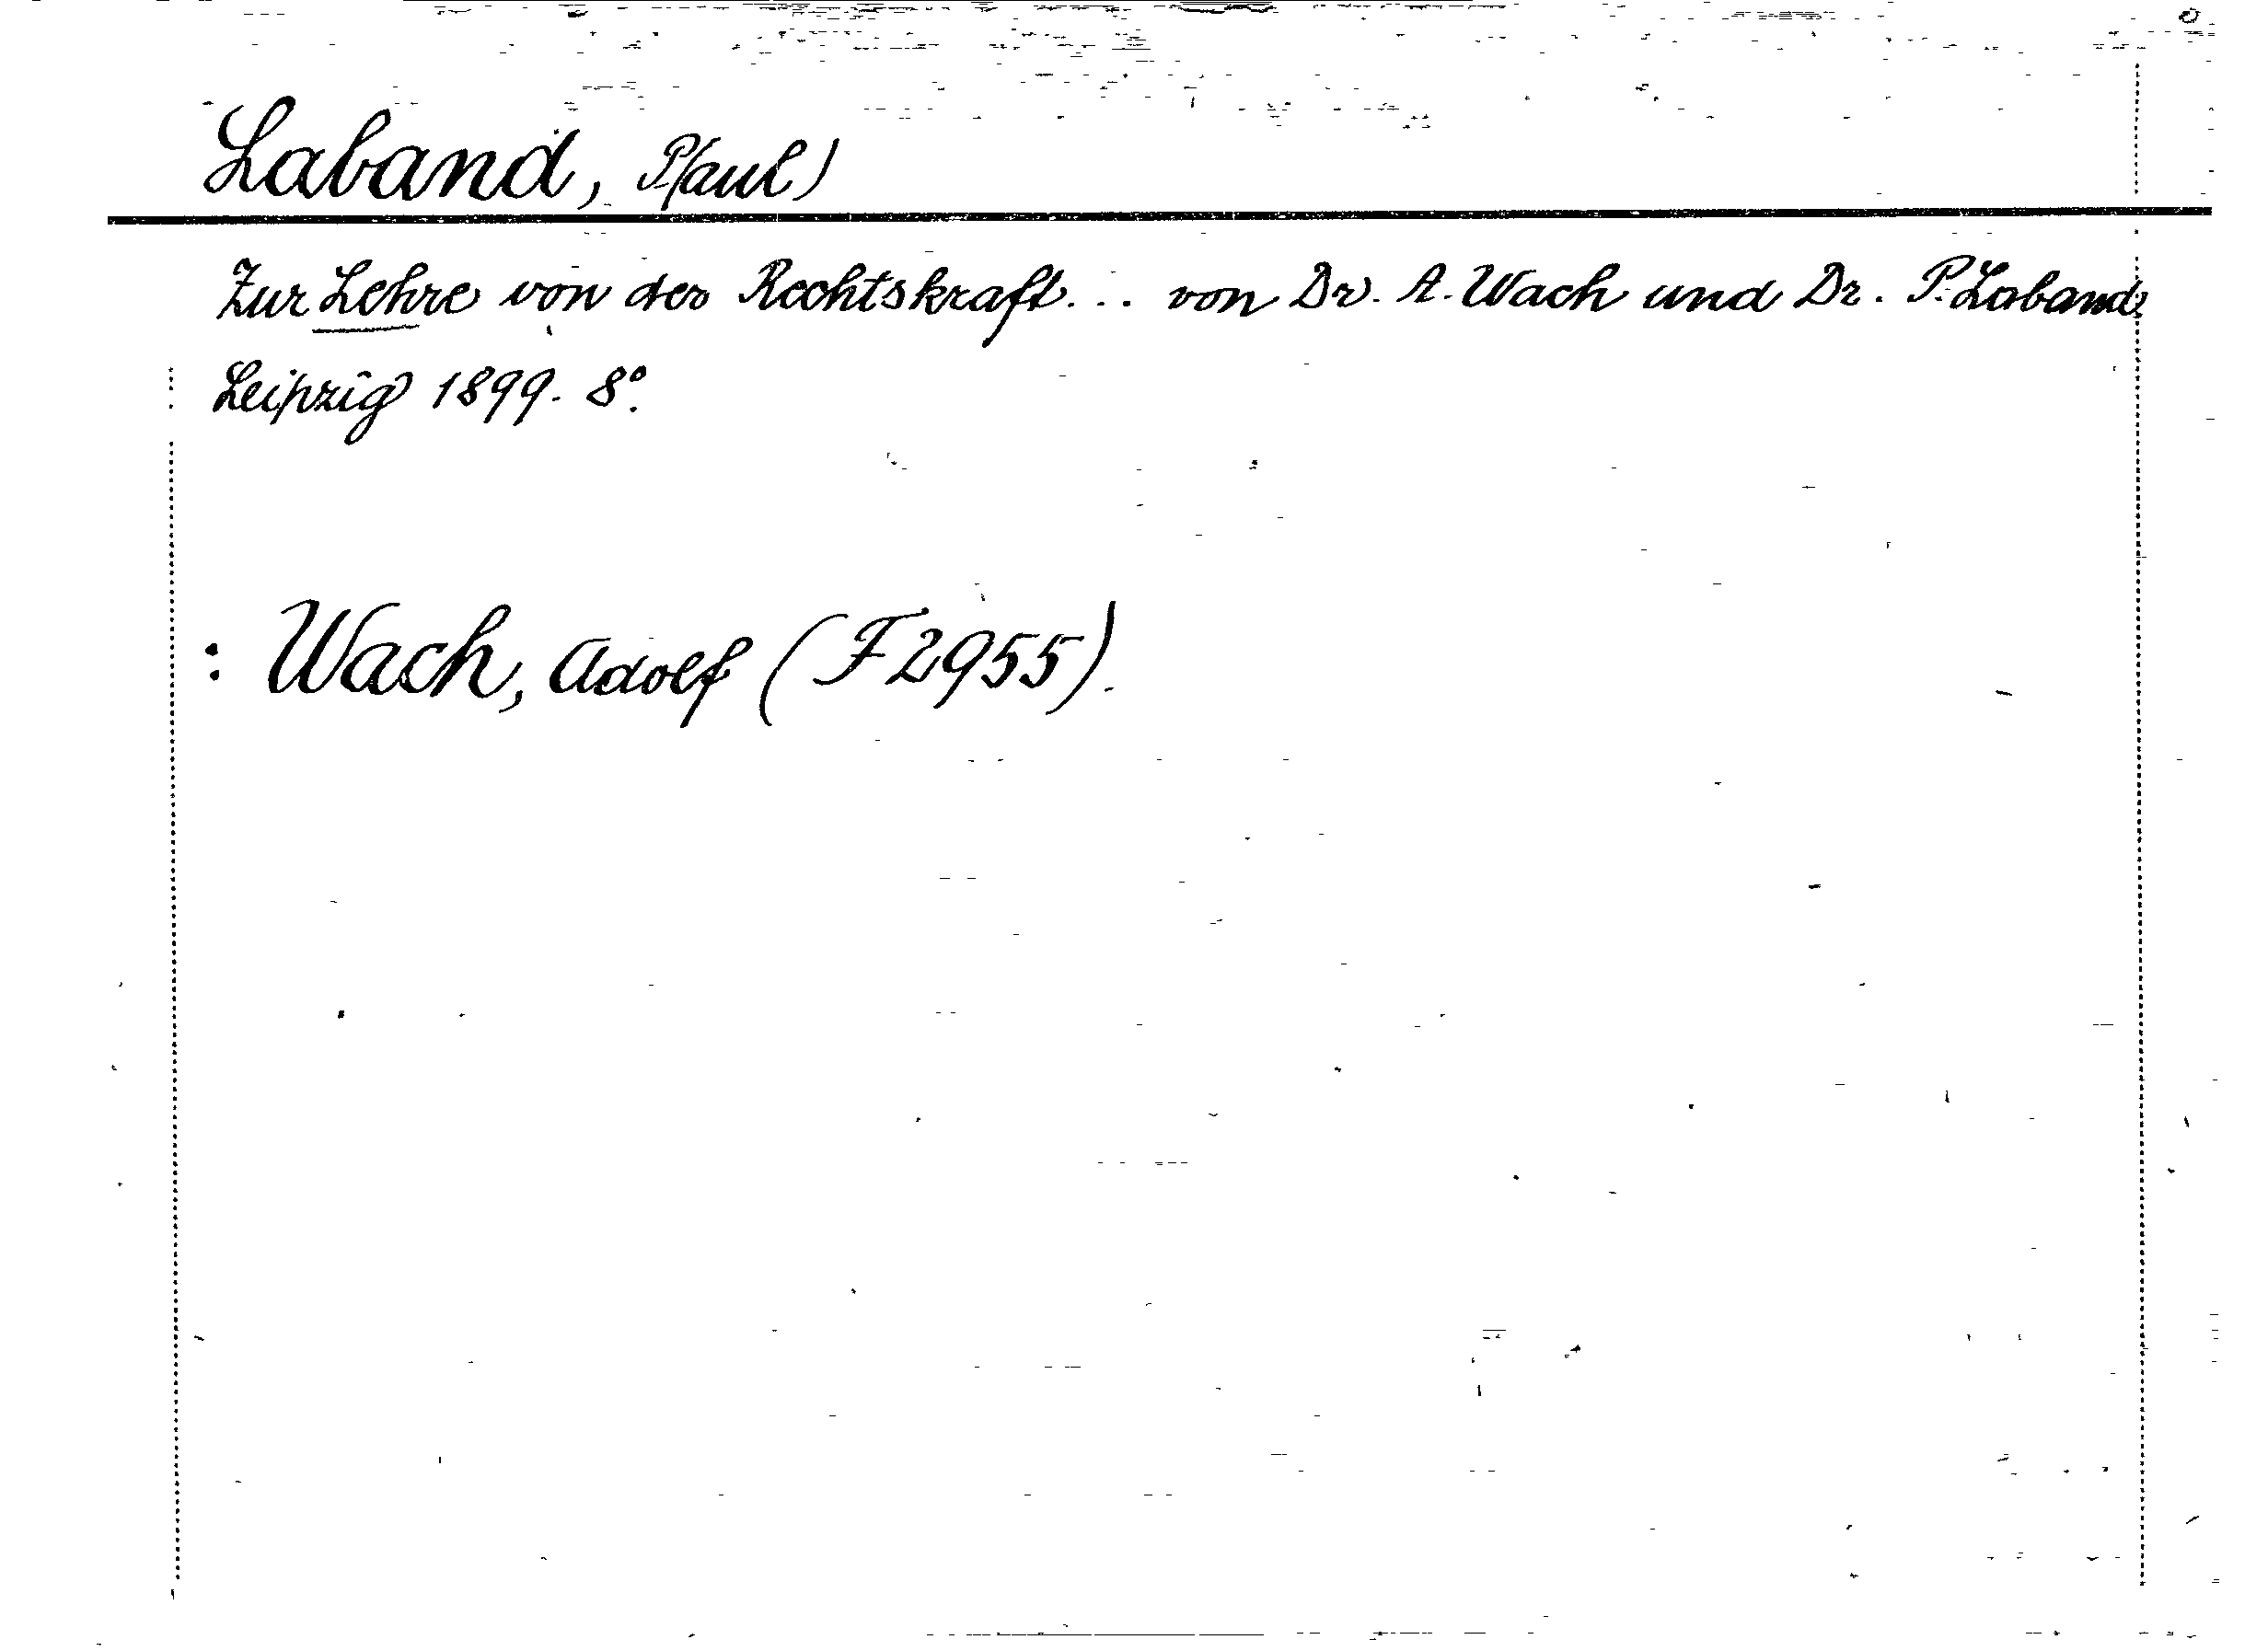 Laband, P(aul)
Zur Lehre von der Rechtskraft... von Dr. A. Wach und Dr. P. Laband.
Leipzig 1899. 8°.
: Wach, Adolf (F 2955).